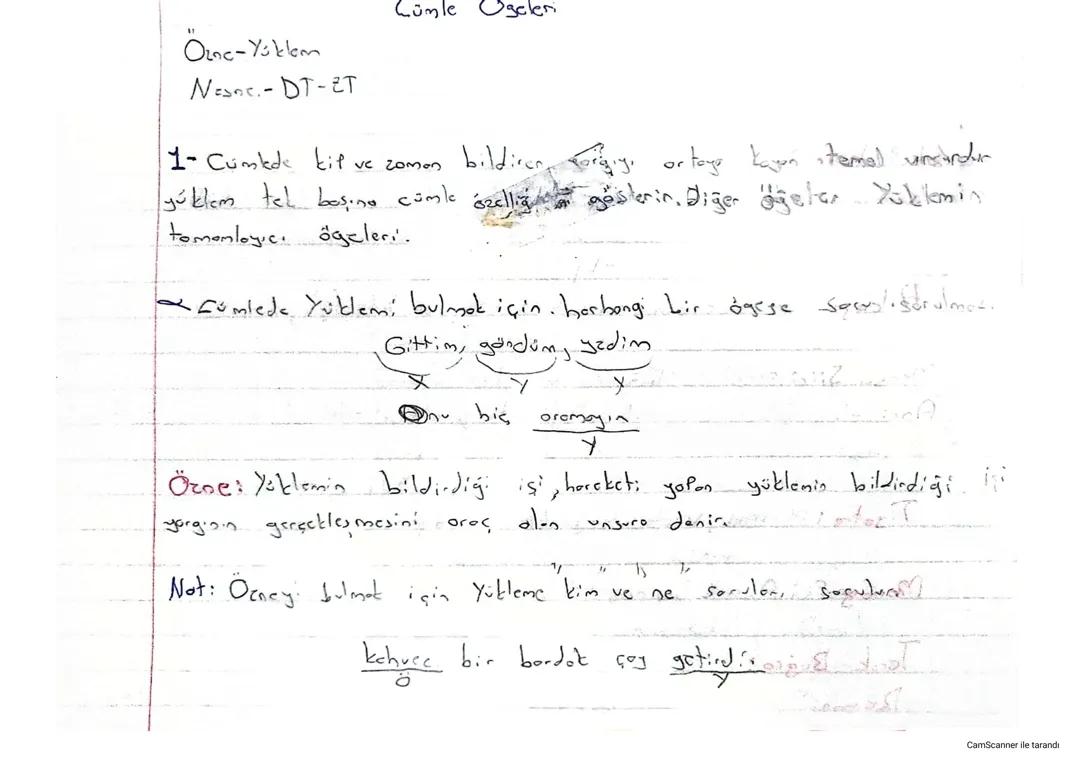 Cümle Ögeleri
Özne-Yüklem
Nesne.- DT-ZT
1- Cümlede kip ve zaman bildiren, yargıyı ortaya koyan temel unsurdur
yüklem tek başına cümle özelliği gösterir. Diğer öğeler Yüklemin
tamamlayıcı ögeleri.
Cümlede Yüklemi bulmak için. herhangi bir ögeye sorulmaz.
Gittim, gördüm, yedim
Y Y Y
Onu hiç aramayın
Y
Özne: Yüklemin bildirdiği işi, hareketi yapan yüklemin bildirdiği işi
yargının gerçekleşmesini araç olan unsura denir.
Not: Özneyi bulmak için Yükleme "kim" ve "ne" sorulur.
kahveci bir bardak çay getirdi.
Ö Y
CamScanner ile tarandı